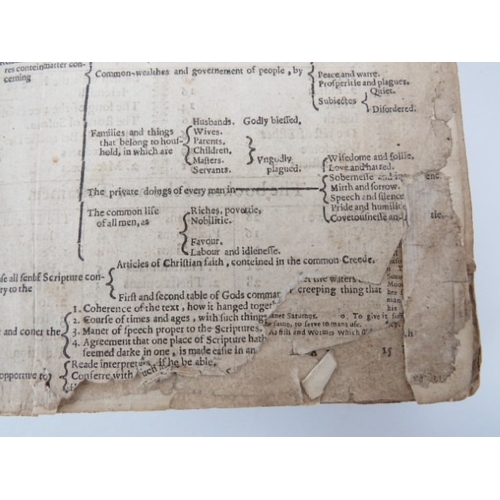 res contein matter con-
cerning
Common-wealthes and governement of people, by
Peace and warre.
Prosperitie and plagues.
Subiectes
Quiet.
Disordered.
Families and things
that belong to hous-
hold, in which are
Husbands.
Wives.
Parents.
Children,
Masters.
Servants.
Godly blessed,
Vngodly
plagued.
The private doings of every man in
Wisedome and follie.
Love and hatred.
Sobernesse and
Mirth and sorrow.
Speech and silence
Pride and humilitie
Covetousnesse and
The common life
of all men, as
Riches, povertie,
Nobilitie.
Favour.
Labour and idlenesse.
Articles of Christian faith, conteined in the common Creede.
se all sense of Scripture con-
ry to the
First and second table of Gods comma
et the waters
creeping thing that
1. Coherence of the text, how it hanged togeth
2. Course of times and ages, with such things
3. Maner of speech proper to the Scriptures.
4. Agreement that one place of Scripture hath
seemed darke in one, is made easie in an
r andconer the
To give
to serve to mans use.
As fish and Wormes which
15
opportune to
Reade interpreters, if he be able,
Conferre with such